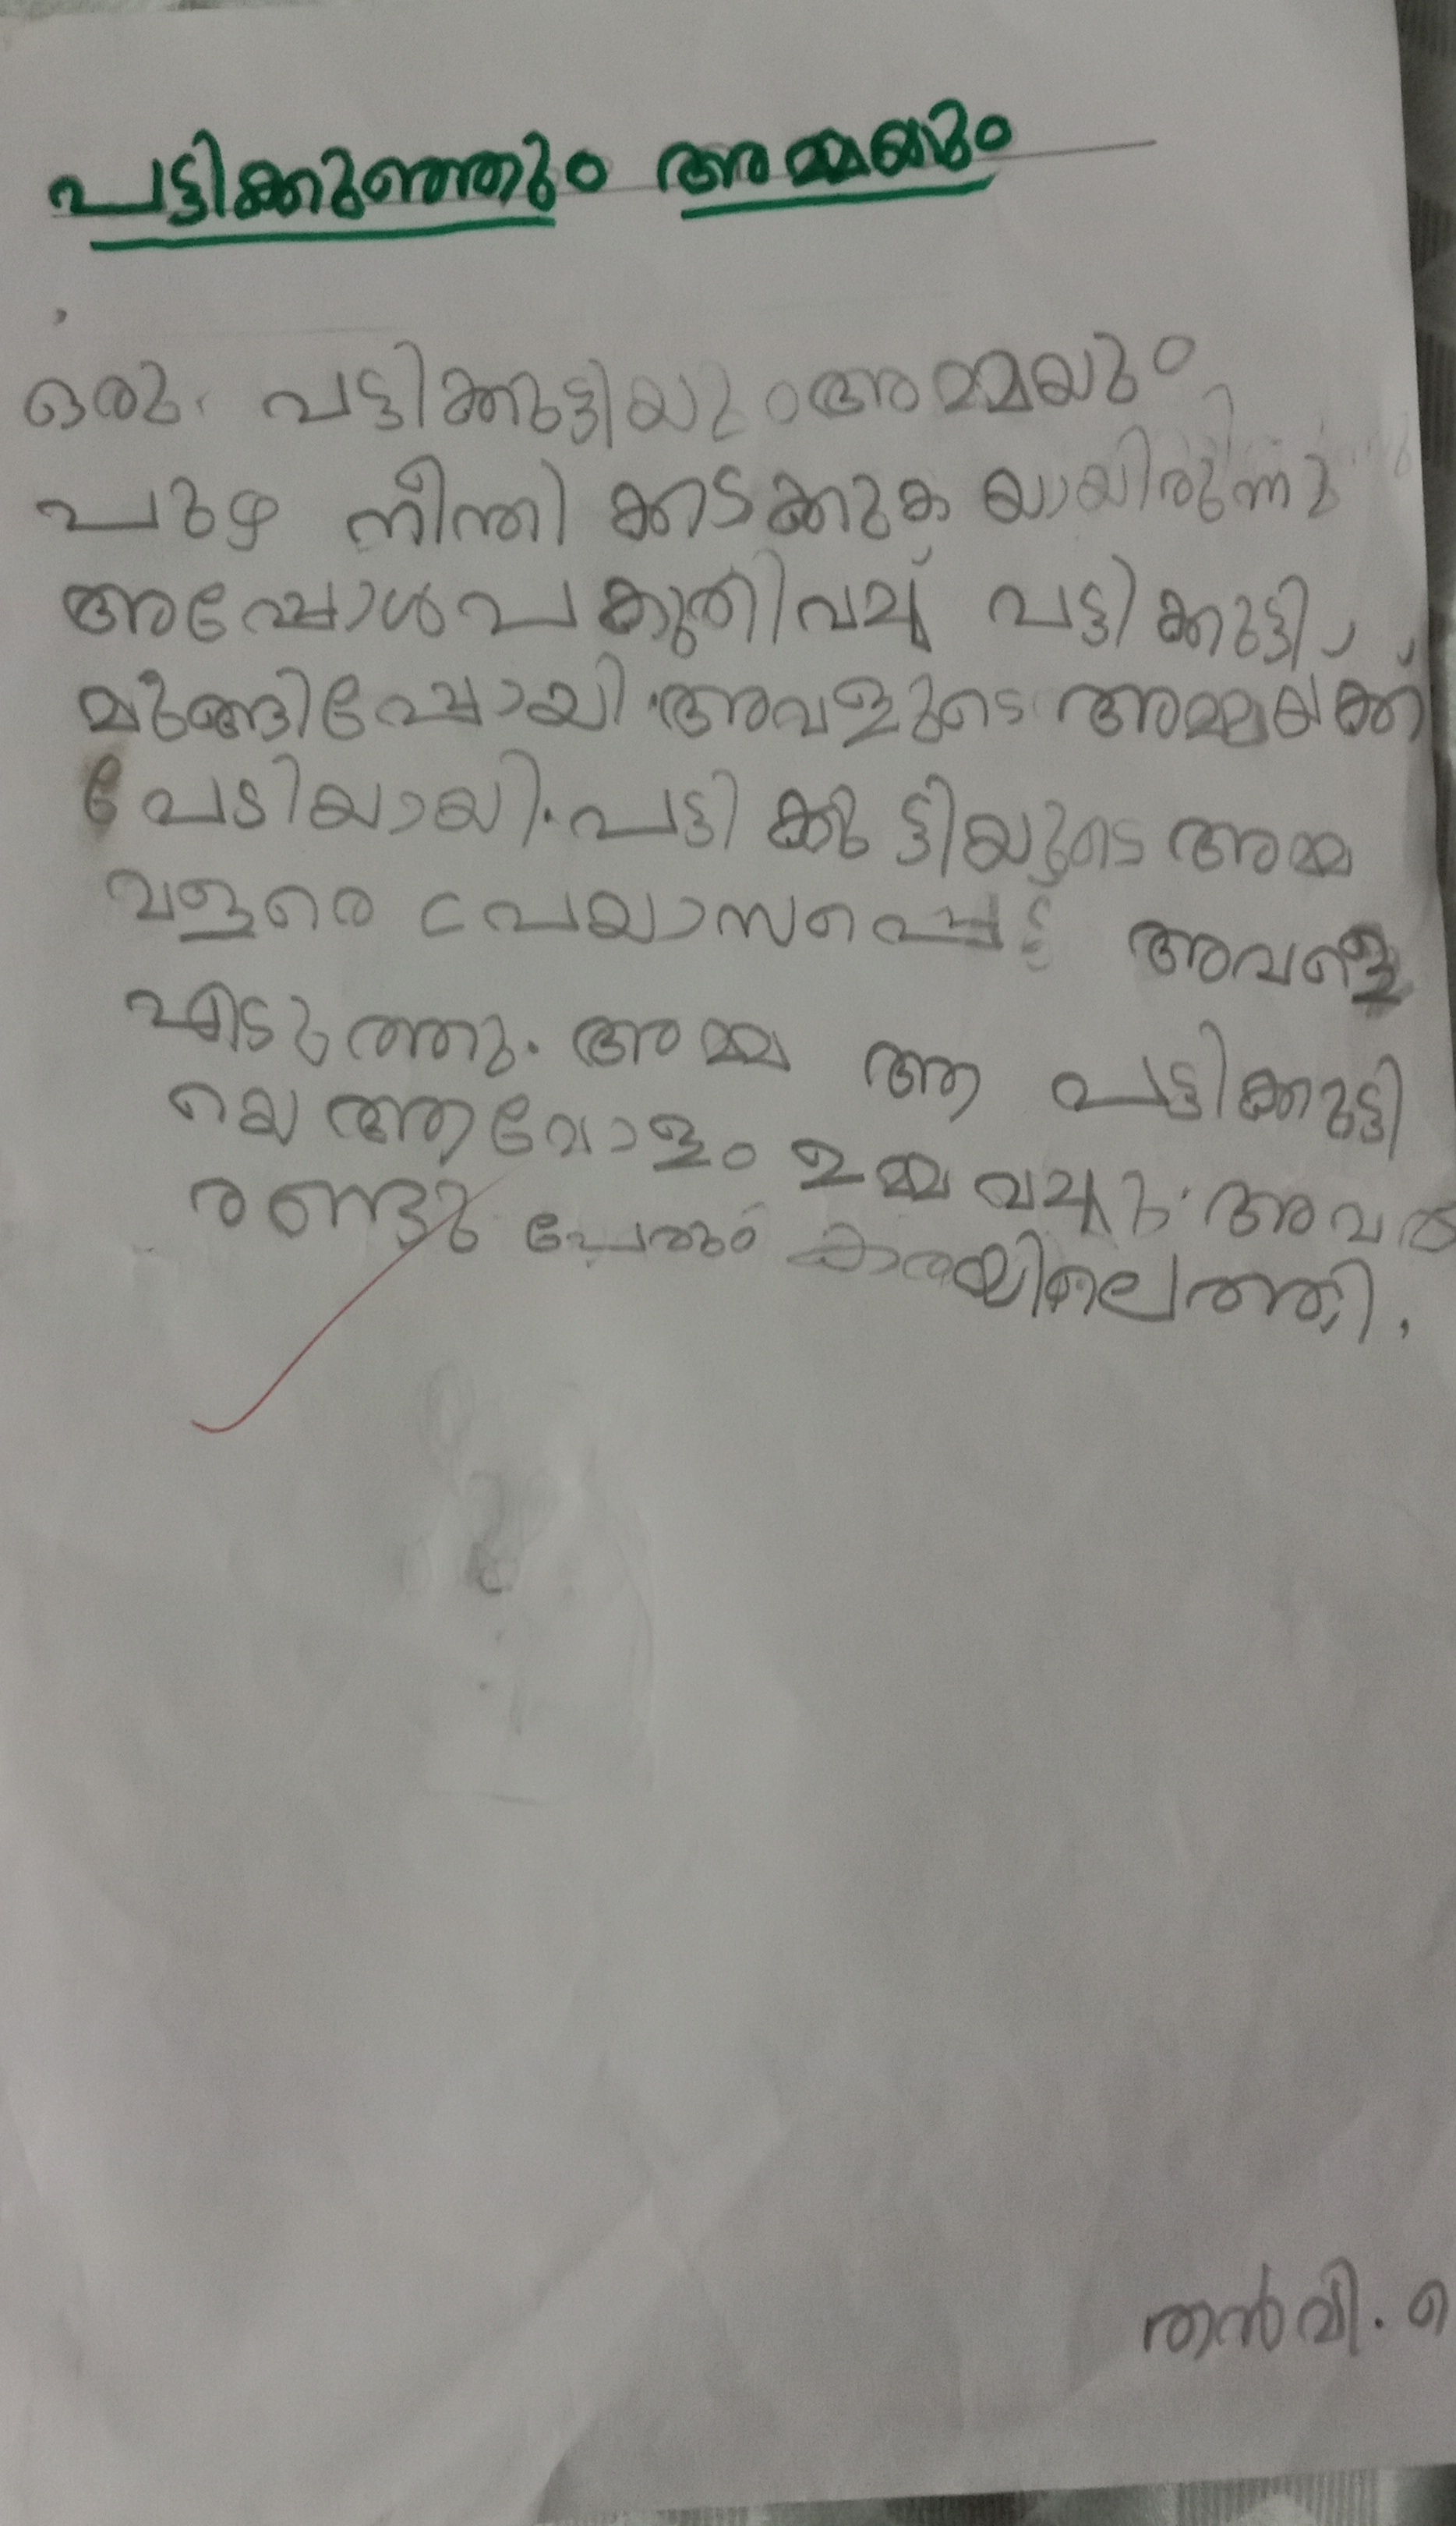 പട്ടിക്കുഞ്ഞും അമ്മയും
ഒരു പട്ടിക്കുട്ടിയും അമ്മയും
പുഴ നീന്തി ക്കടക്കുക യായിരുന്നു
അപ്പോൾ പകുതിവച്ച് പട്ടിക്കുട്ടി
മുങ്ങിപ്പോയി. അവളുടെ അമ്മയ്ക്ക്
പേടിയായി. പട്ടിക്കുട്ടിയുടെ അമ്മ
വളരെ പ്രയാസപ്പെട്ടു അവളെ
എടുത്തു. അമ്മ ആ പട്ടിക്കുട്ടി
യെ ആവോളം ഉമ്മ വച്ചു. അവർ
രണ്ടു പേരും കരയിലെത്തി.
തൻവി.